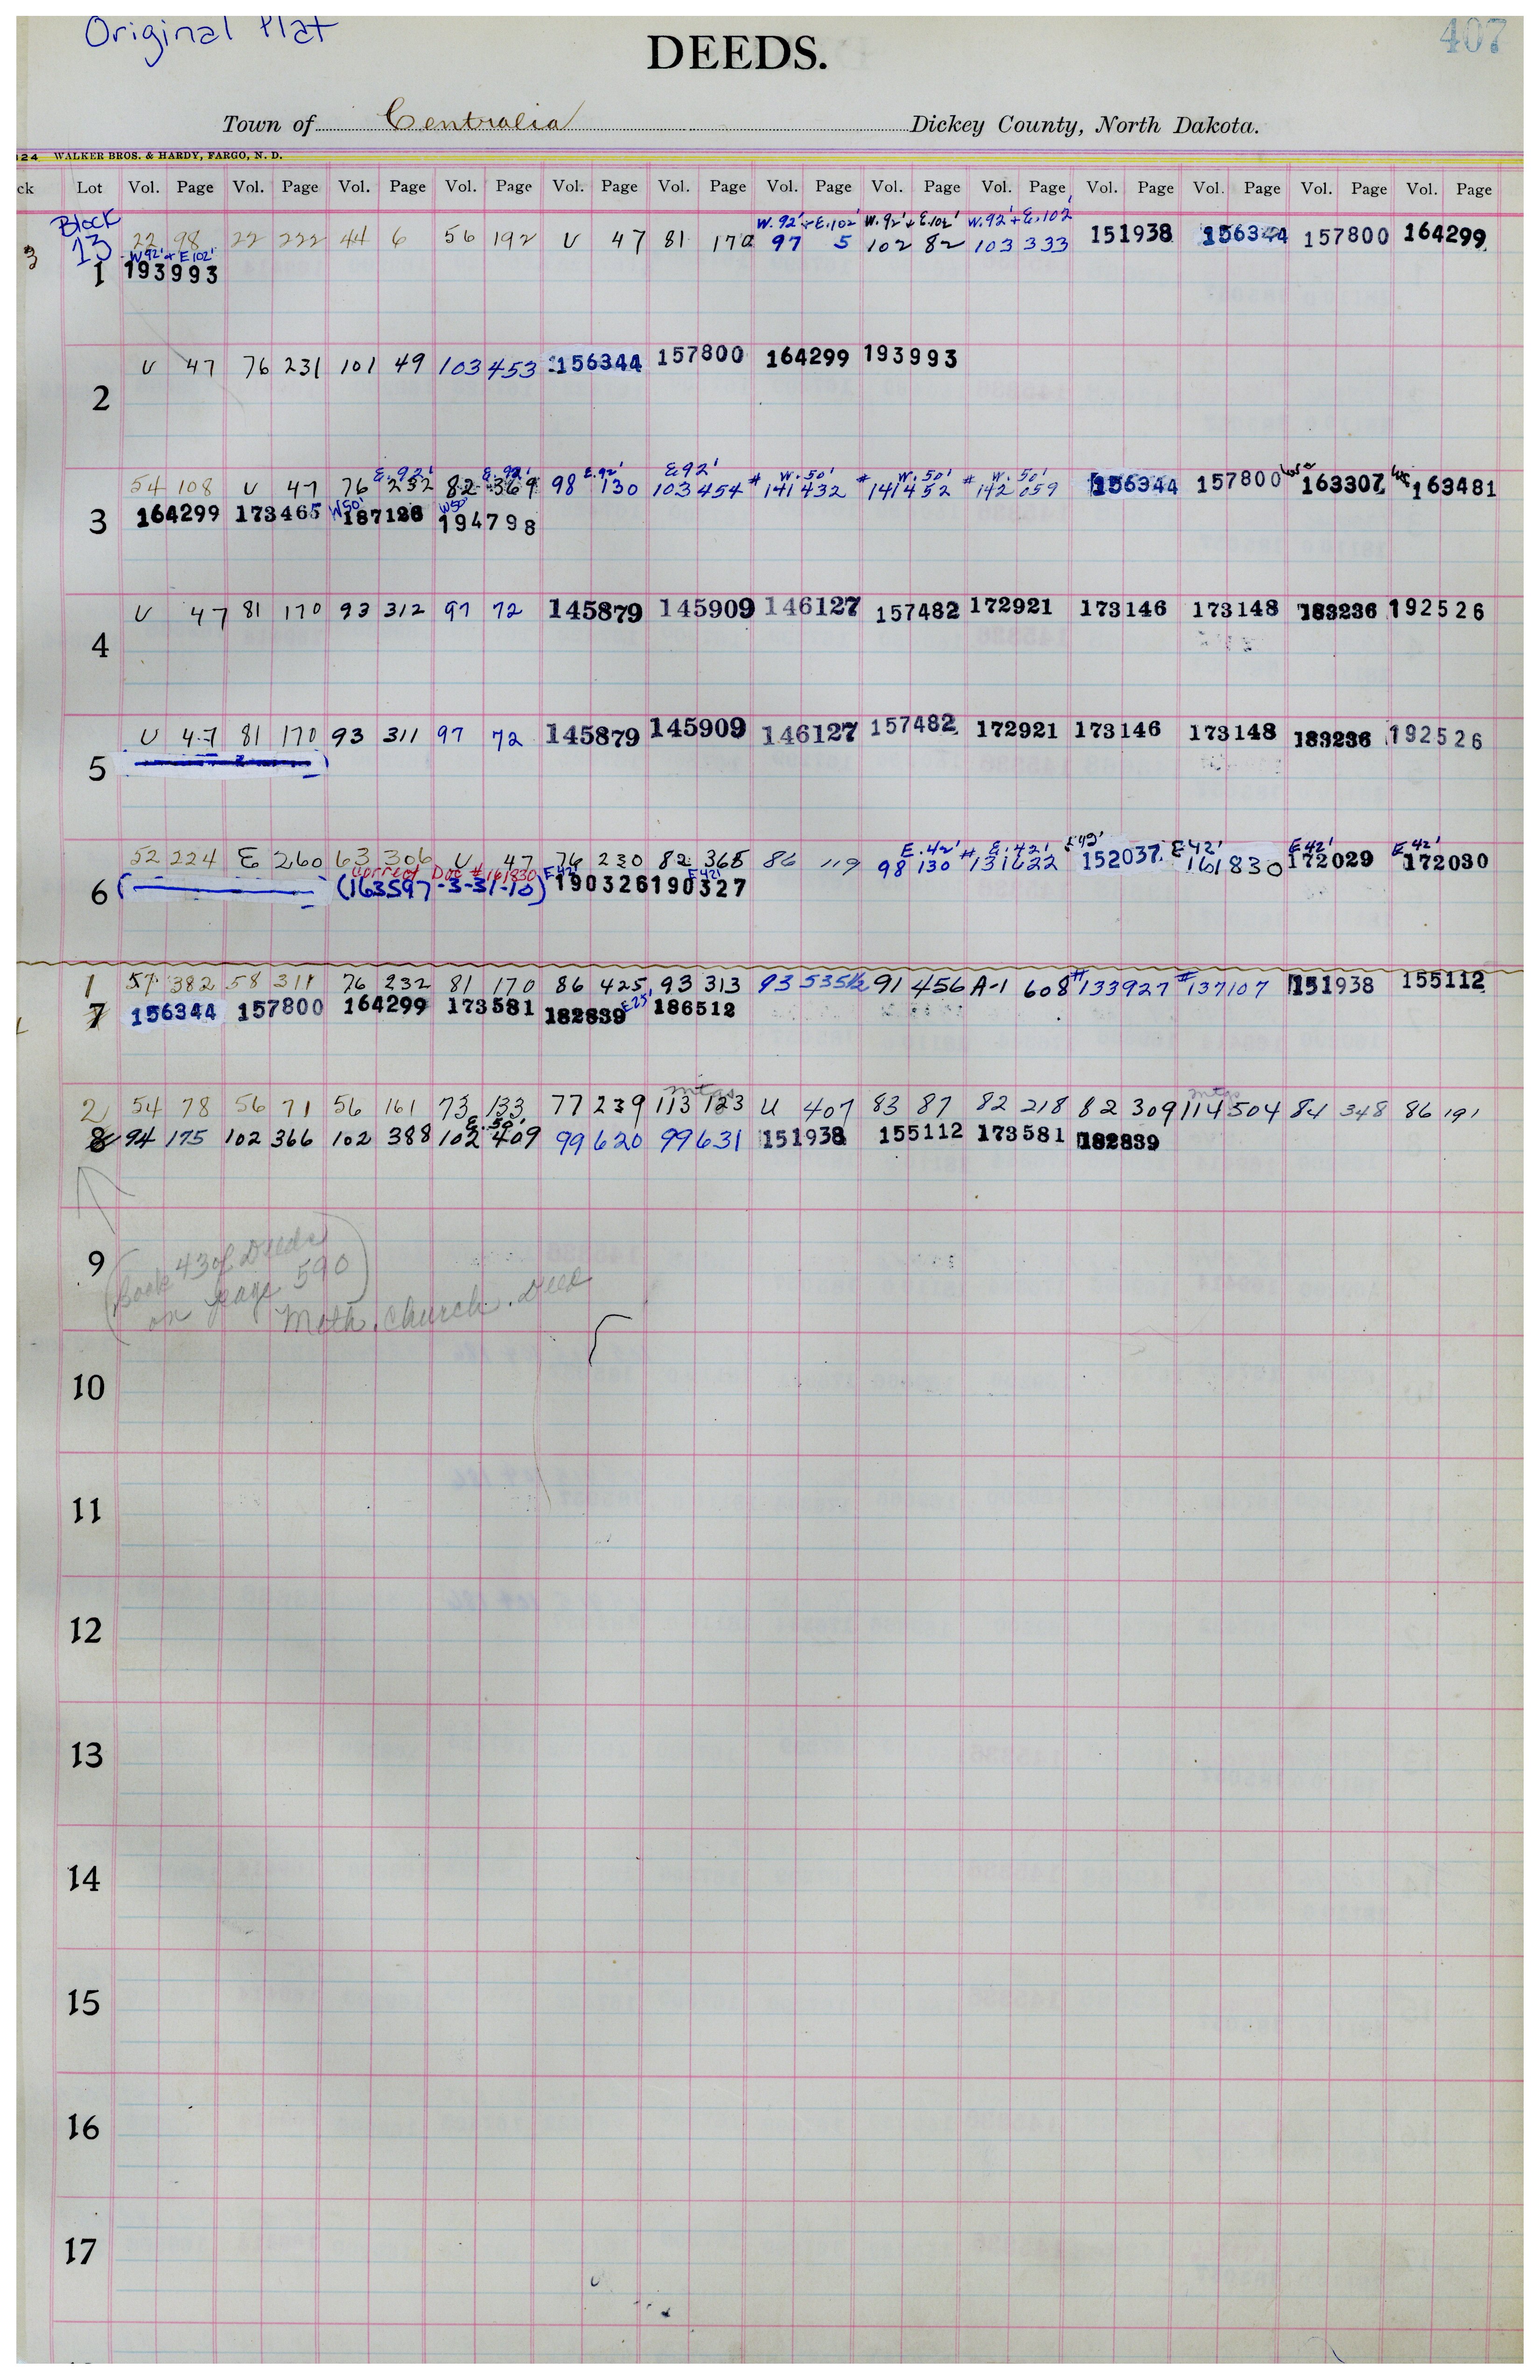 Original Plat
407
DEEDS.
Town of Centralia Dickey County, North Dakota.
124 WALKER BROS. & HARDY, FARGO, N. D.
ck Lot Vol. Page Vol. Page Vol. Page Vol. Page Vol. Page Vol. Page Vol. Page Vol. Page Vol. Page Vol. Page Vol. Page Vol. Page Vol. Page
Block W. 92' + E. 102' W. 92' + E. 102' W. 92' + E. 102'
3 13 22 98 22 222 44 6 56 192 U 47 81 170 97 5 102 82 103 333 151938 156344 157800 164299
W 92' + E 102'
1 193993
U 47 76 231 101 49 103 453 156344 157800 164299 193993
2
E. 92' E. 92' E. 92' E 92' W. 50' W. 50' W. 50'
54 108 U 47 76 232 82 369 98 130 103 454 #141432 #141452 #142059 156344 157800 163307 163481
W50' W50'
3 164299 173465 187126 194798
U 47 81 170 93 312 97 72 145879 145909 146127 157482 172921 173146 173148 183236 192526
4
U 47 81 170 93 311 97 72 145879 145909 146127 157482 172921 173146 173148 183236 192526
5
E. 42' E. 42' E 42' E 42' E 42' E 42'
52 224 E 260 63 306 U 47 76 230 82 365 86 119 98 130 #131622 152037 161830 172029 172030
Correct Doc # 161830 E 42' E 42'
6 (163597 -3-31-10) 190326 190327
1 57 382 58 311 76 232 81 170 86 425 93 313 93 535½ 91 456 A-1 608 #133927 #137107 151938 155112
7 156344 157800 164299 173581 182839 E 25' 186512
mtgs mtgs
2 54 78 56 71 56 161 73 133 77 239 113 123 U 407 83 87 82 218 82 309 114 504 84 348 86 191
E. 50'
8 94 175 102 366 102 388 102 409 99 620 99 631 151938 155112 173581 182839
9
(Book 43 of Deeds
on page 590)
Meth. Church. Deed
10
11
12
13
14
15
16
17